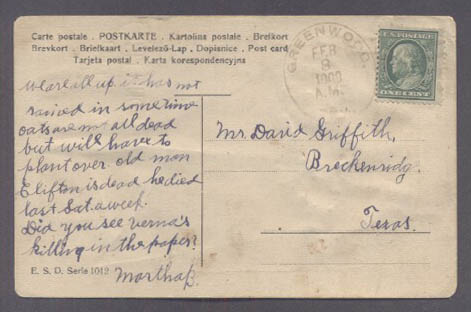 Carte postale . POSTKARTE . Kartolina postale . Brefkort
Brevkort . Briefkaart . Levelező-Lap . Dopisnice . Post card
Tarjeta postal . Karta korespondencyjna
we are all up it has not
rained in sometime
oats are not all dead
but will have to
plant over. old man
Clifton is dead he died
last Sat. a week.
Did you see Verna's
killing in the paper?
Martha B.
E. S. D. Serie 1012
GREENWOOD
FEB
8
1909
A.M.
U.S. POSTAGE
ONE CENT
Mr. David Griffith,
Breckenridg.
Texas.